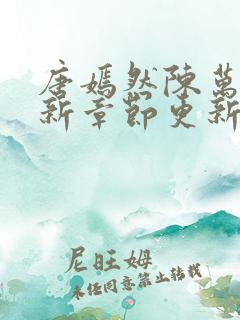 唐嫣然陳萬
新章節更新
尼旺姆
未经同意禁止转载